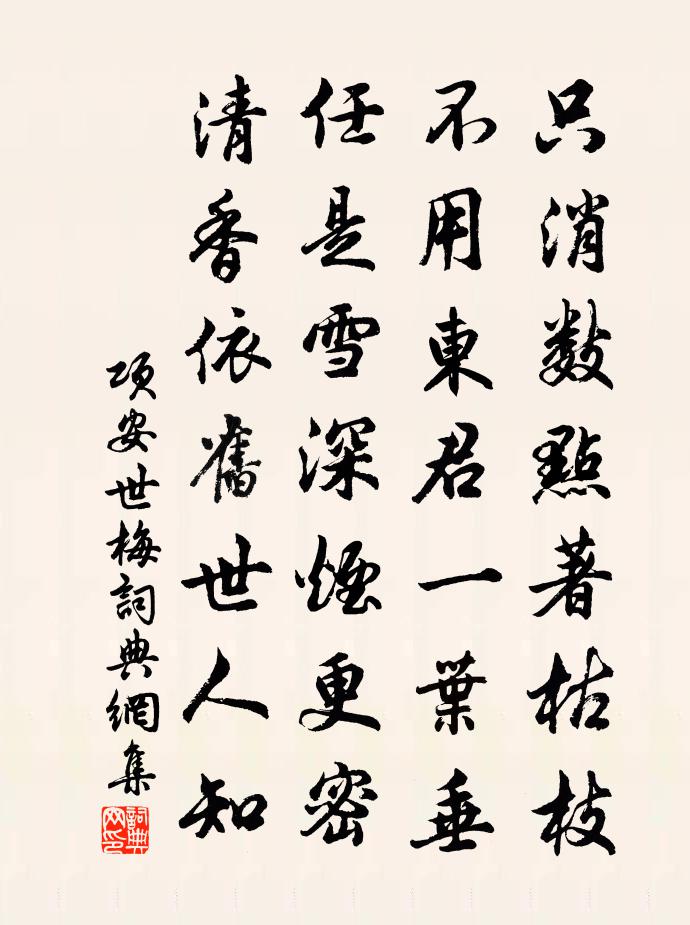 只消數點著枯枝
不用東君一葉垂
任是雪深煙更密
清香依舊世人知
項安世梅詞典網集
詞典網印